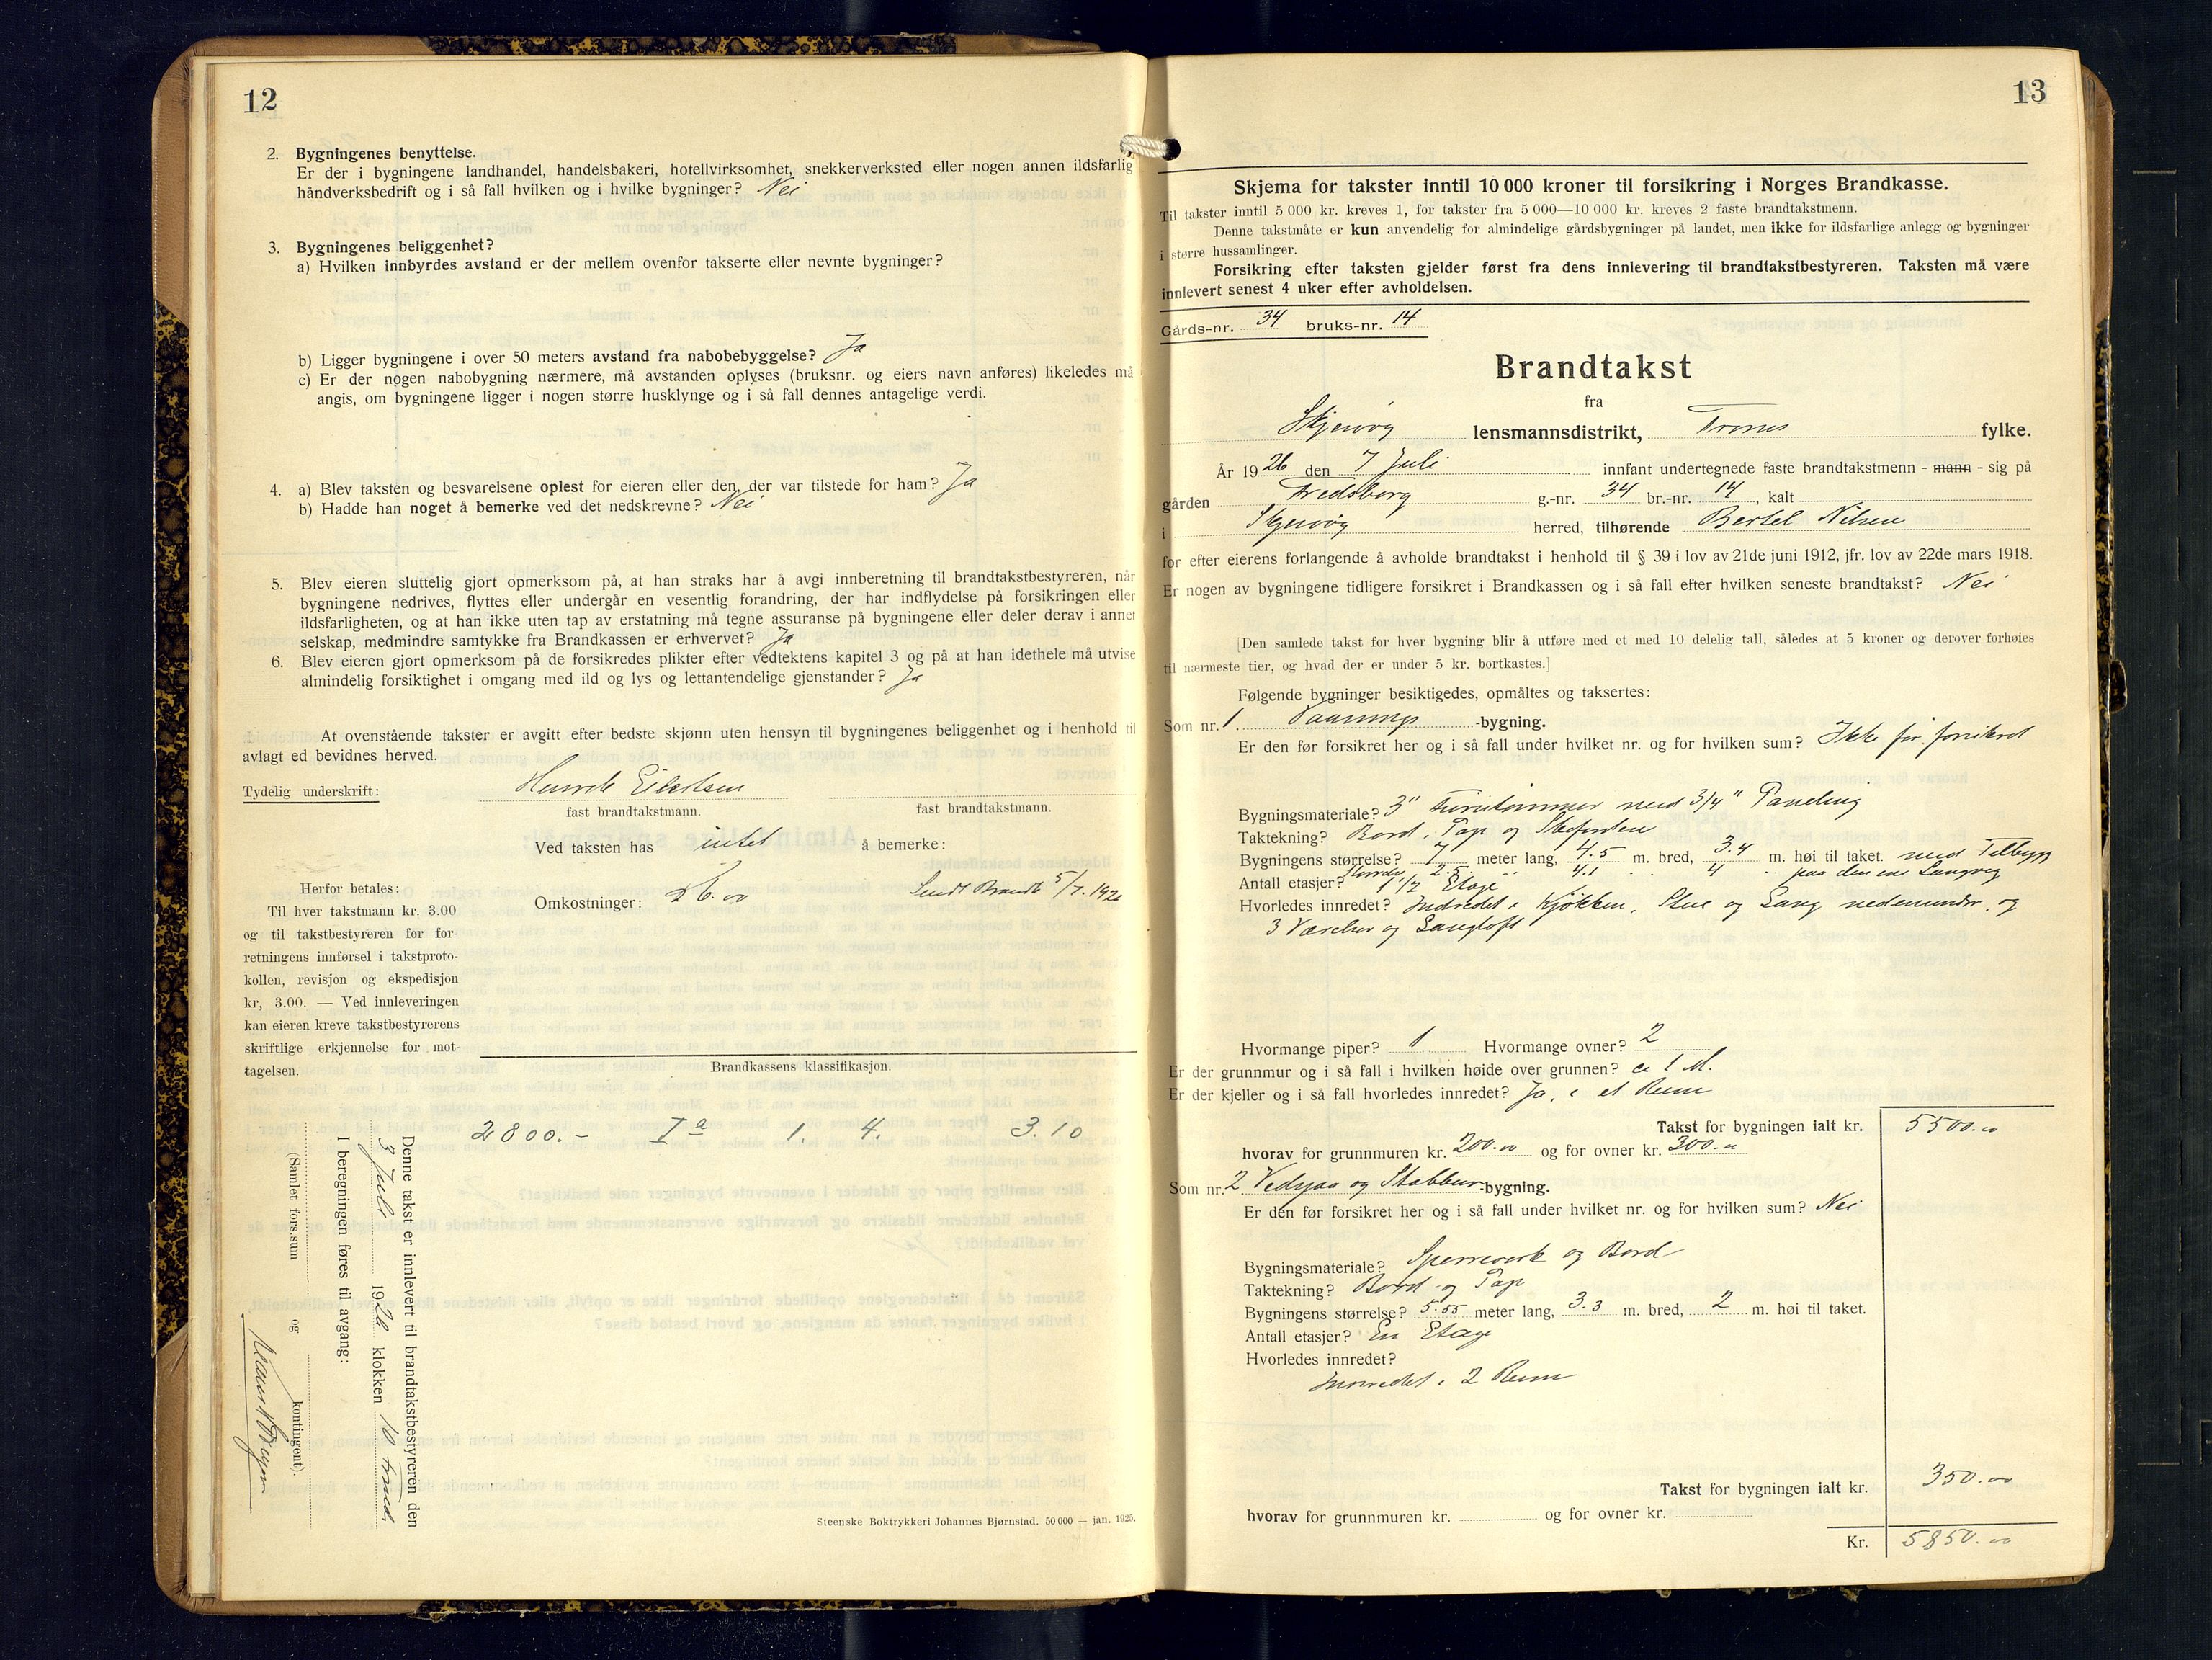 12
2. Bygningenes benyttelse.
Er der i bygningene landhandel, handelsbakeri, hotellvirksomhet, snekkerverksted eller nogen annen ildsfarlig
håndverksbedrift og i så fall hvilken og i hvilke bygninger? Nei
3. Bygningenes beliggenhet?
a) Hvilken innbyrdes avstand er der mellem ovenfor takserte eller nevnte bygninger?
b) Ligger bygningene i over 50 meters avstand fra nabobebyggelse? Ja
c) Er der nogen nabobygning nærmere, må avstanden oplyses (bruksnr. og eiers navn anføres) likeledes må
angis, om bygningene ligger i nogen større husklynge og i så fall dennes antagelige verdi.
4. a) Blev taksten og besvarelsene oplest for eieren eller den, der var tilstede for ham? Ja
b) Hadde han noget å bemerke ved det nedskrevne? Nei
5. Blev eieren sluttelig gjort opmerksom på, at han straks har å avgi innberetning til brandtakstbestyreren, når
bygningene nedrives, flyttes eller undergår en vesentlig forandring, der har indflydelse på forsikringen eller
ildsfarligheten, og at han ikke uten tap av erstatning må tegne assuranse på bygningene eller deler derav i annet
selskap, medmindre samtykke fra Brandkassen er erhvervet? Ja
6. Blev eieren gjort opmerksom på de forsikredes plikter efter vedtektens kapitel 3 og på at han idethele må utvise
almindelig forsiktighet i omgang med ild og lys og lettantendelige gjenstander? Ja
At ovenstående takster er avgitt efter bedste skjønn uten hensyn til bygningenes beliggenhet og i henhold til
avlagt ed bevidnes herved.
Tydelig underskrift: Henrik Eilertsen
fast brandtakstmann. fast brandtakstmann.
Ved taksten has intet å bemerke:
Omkostninger: 26.00 Sendt Brandk 5/7.1926
Herfor betales:
Til hver takstmann kr. 3.00
og til takstbestyreren for for-
retningens innførsel i takstproto-
kollen, revisjon og ekspedisjon
kr, 3.00. — Ved innleveringen
kan eieren kreve takstbestyrerens
skriftlige erkjennelse for mot-
tagelsen.
Brandkassens klassifikasjon.
2800.- Ia 1. 4. 3.10
Denne takst er innlevert til brandtakstbestyreren den
3 Juli 1926 klokken 10 formd.
I beregningen føres til avgang:
(Samlet fors.sum og kontingent).
Steenske Boktrykkeri Johannes Bjørnstad. 50 000 — jan. 1925.
13
Skjema for takster inntil 10 000 kroner til forsikring i Norges Brandkasse.
Til takster inntil 5 000 kr. kreves 1, for takster fra 5 000—10 000 kr. kreves 2 faste brandtakstmenn.
Denne takstmåte er kun anvendelig for almindelige gårdsbygninger på landet, men ikke for ildsfarlige anlegg og bygninger
i større hussamlinger.
Forsikring efter taksten gjelder først fra dens innlevering til brandtakstbestyreren. Taksten må være
innlevert senest 4 uker efter avholdelsen.
Gårds-nr. 34 bruks-nr. 14
Brandtakst
fra
Skjervøy lensmannsdistrikt, Troms fylke.
År 1926 den 7 Juli innfant undertegnede faste brandtakstmenn - mann - sig på
gården Fredsborg g.-nr. 34 br.-nr. 14, kalt
i Skjervøy herred, tilhørende Bertel Nilsen
for efter eierens forlangende å avholde brandtakst i henhold til § 39 i lov av 21de juni 1912, jfr. lov av 22de mars 1918.
Er nogen av bygningene tidligere forsikret i Brandkassen og i så fall efter hvilken seneste brandtakst? Nei
[Den samlede takst for hver bygning blir å utføre med et med 10 delelig tall, således at 5 kroner og derover forhøies
til nærmeste tier, og hvad der er under 5 kr. bortkastes.]
Følgende bygninger besiktigedes, opmåltes og taksertes:
Som nr. 1 Vaanings -bygning.
Er den før forsikret her og i så fall under hvilket nr. og for hvilken sum? Ikke før forsikret
Bygningsmateriale? 3" Furutømmer med 3/4" Paneling
Taktekning? Bord, Pap og
Bygningens størrelse? 7 meter lang, 4.5 m. bred, 3.4 m. høi til taket. med Tilbygg
Størrelse 2.5 " 4.1 " 4 " paa den ene Langveg
Antall etasjer? 1 1/2 Etage
Hvorledes innredet? Indredet i Kjøkken, Stue og Gang nedenunder, og
3 Værelser og Gangloft
Hvormange piper? 1 Hvormange ovner? 2
Er der grunnmur og i så fall i hvilken høide over grunnen? ca 1 M.
Er der kjeller og i så fall hvorledes innredet? Ja, i et Rum
Takst for bygningen ialt kr. 5500.00
hvorav for grunnmuren kr. 200.00 og for ovner kr. 300.00
Som nr. 2 Vedsjaa og Stabbur -bygning.
Er den før forsikret her og i så fall under hvilket nr. og for hvilken sum? Nei
Bygningsmateriale? Sperreverk og Bord
Taktekning? Bord og Pap
Bygningens størrelse? 5.55 meter lang, 3.3 m. bred, 2 m. høi til taket.
Antall etasjer? En Etage
Hvorledes innredet?
Innredet i 2 Rum
Takst for bygningen ialt kr. 350.00
hvorav for grunnmuren kr. og for ovner kr.
Kr. 5850.00